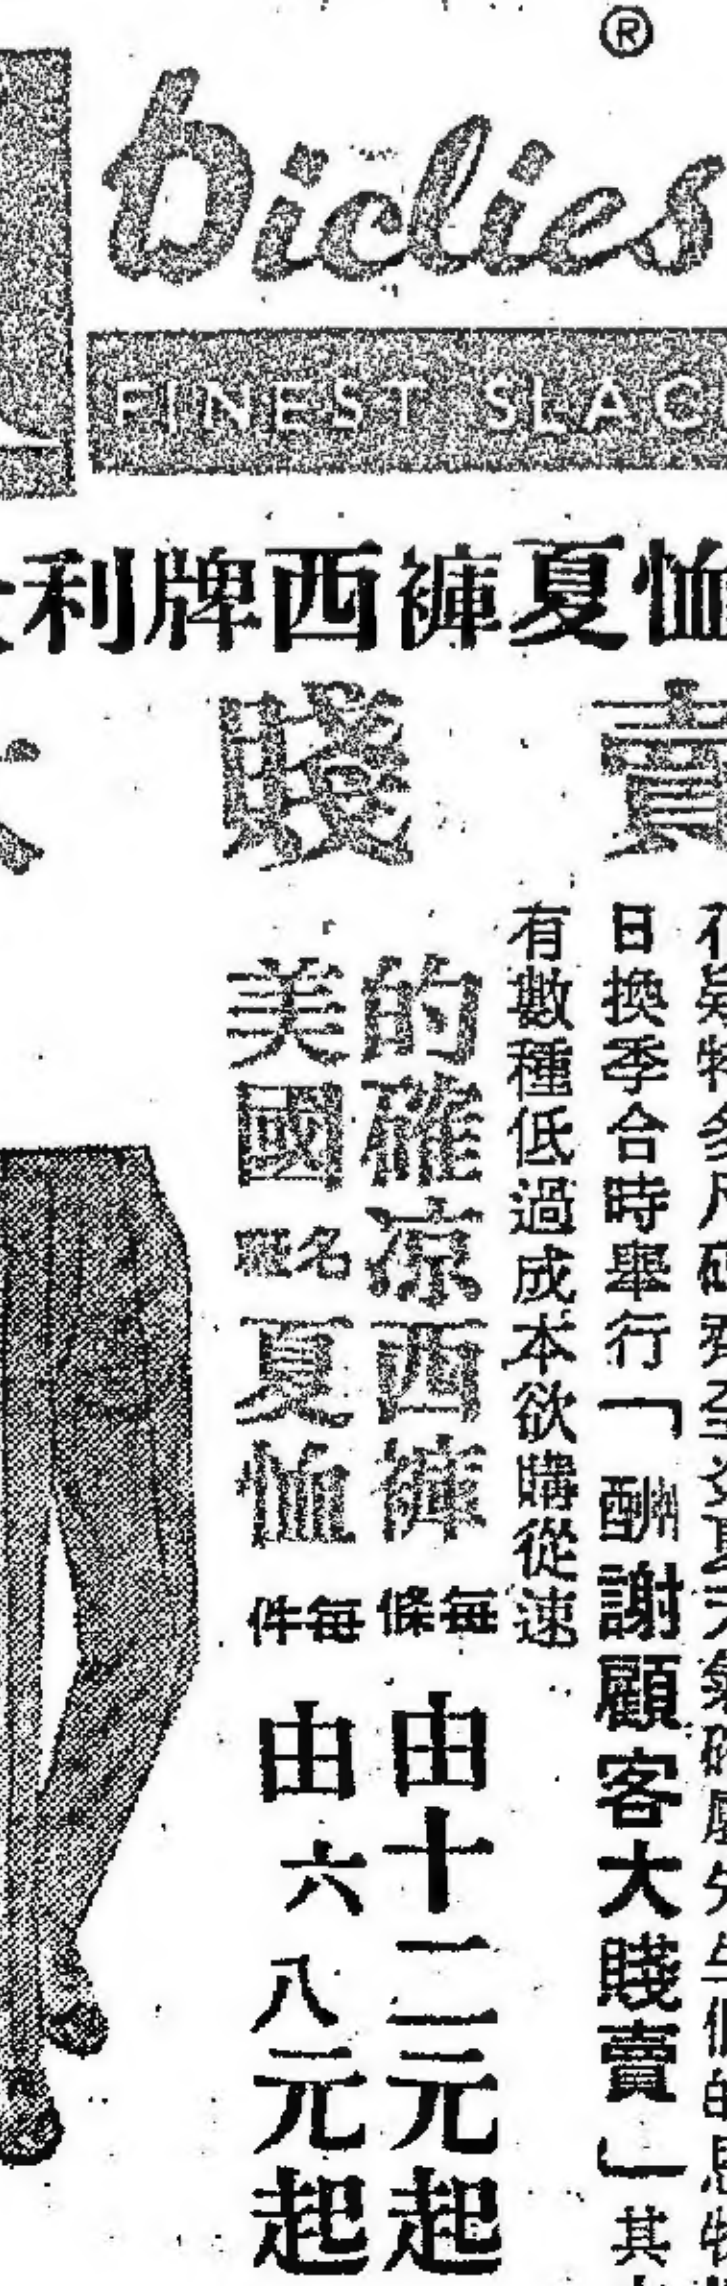 ®
biclies
FINEST SLAC
利牌西褲夏恤
賤賣
日換季合時舉行「酬謝顧客大賤賣」其
有數種低過成本欲購從速
的確涼西褲每條由十二元起
美國名夏恤每件由六八元起